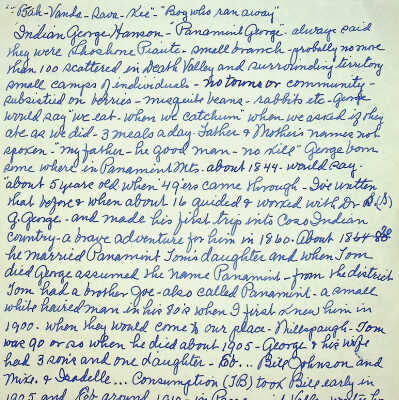 "-"Bah-Vanda-Sava-Kee"-"Boy who ran away"
Indian George Hanson - "Panamint George" - always said
they were Shoshone Piaute - small branch - probably no more
than 100 scattered in Death Valley and surrounding territory
small camps of individuals - no towns or community -
subsistied on berries - mesquite beans - rabbits etc - George
would say "we eat - when we catchum" when we asked if they
ate as we did - 3 meals a day. Father & Mothers names not
spoken - "my father - he good man - no kill" George born
some where in Panamint Mts. about 1844 - would say
"about 5 years old when '49ers came through - I've written
that before & when about 16 guided & worked with Dr (S)
G. George - and made his first trip into Coso Indian
country - a brave adventure for him in 1860. About
he married Panamint Tom's daughter and when Tom
died George assumed the name Panamint - from the district
Tom had a brother Joe - also called Panamint - a small
white haired man in his 80's when I first knew him in
1900 - when they would come to our place - Millspaugh - Tom
was 90 or so when he died about 1905 - George & his wife
had 3 sons and one daughter - Bill Johnson and
Mike - & Isabelle... Consumption (TB) took Bill early in
1905 and around